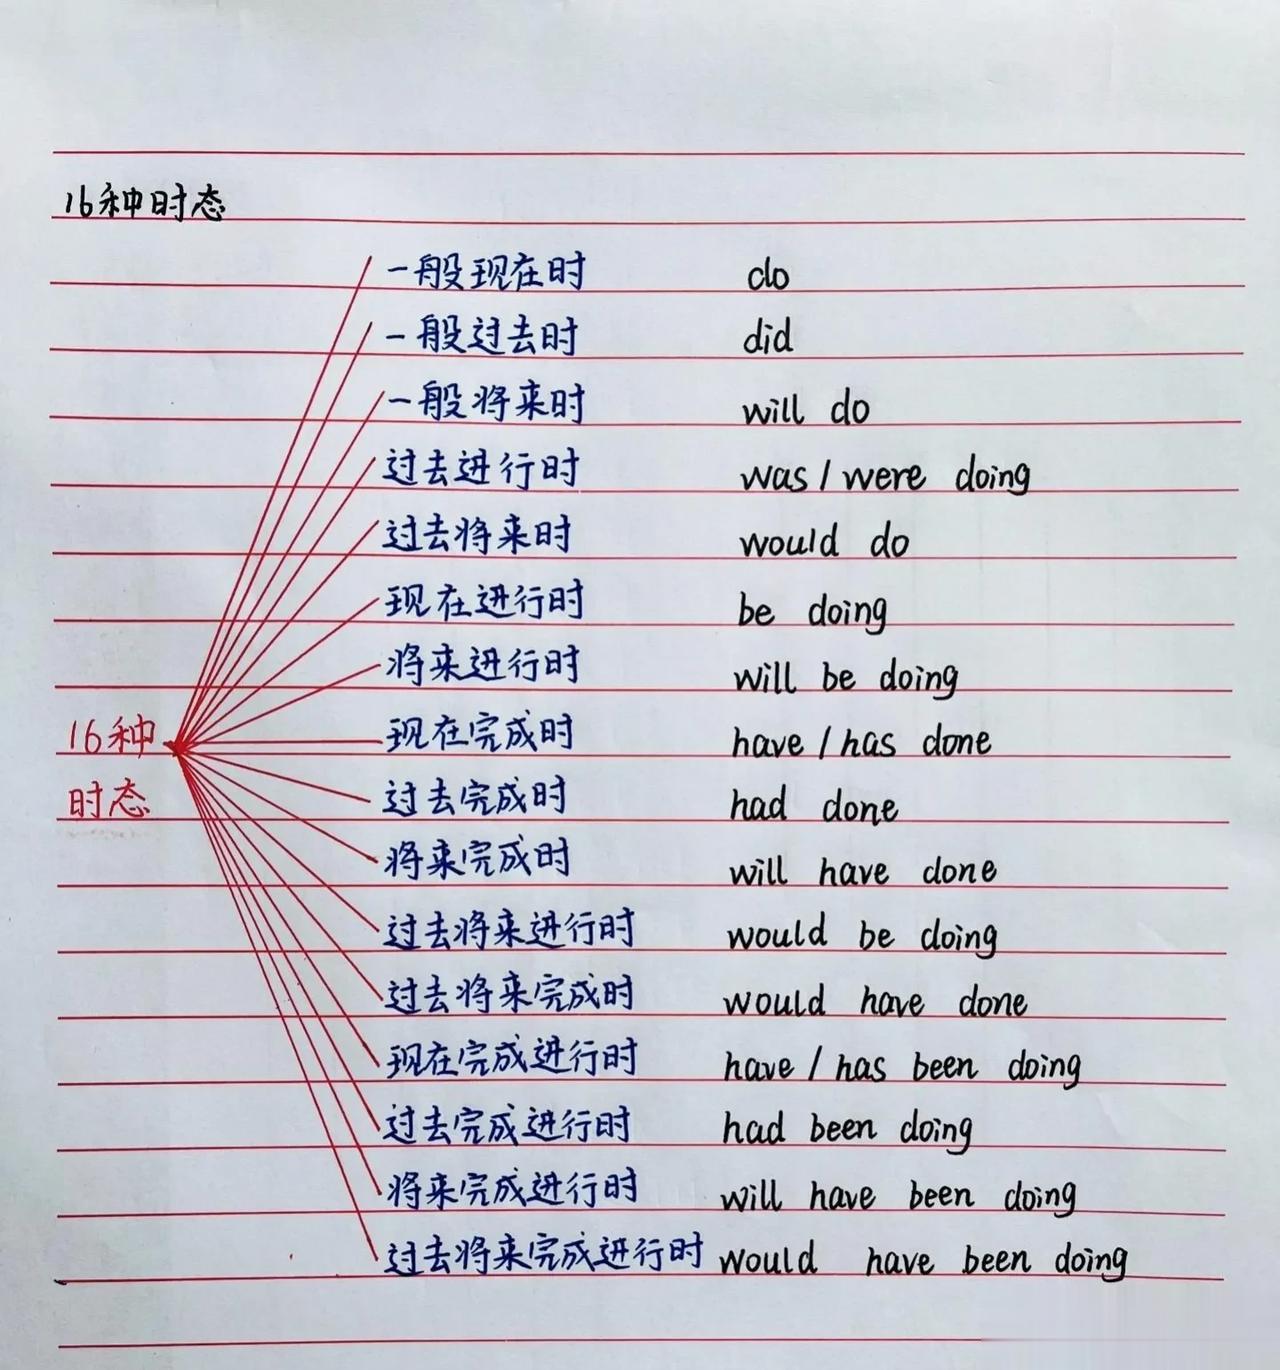 16种时态
一般现在时 do
一般过去时 did
一般将来时 will do
过去进行时 was/were doing
过去将来时 would do
现在进行时 be doing
将来进行时 will be doing
16种
时态
现在完成时 have/has done
过去完成时 had done
将来完成时 will have done
过去将来进行时 would be doing
过去将来完成时 would have done
现在完成进行时 have/has been doing
过去完成进行时 had been doing
将来完成进行时 will have been doing
过去将来完成进行时 would have been doing